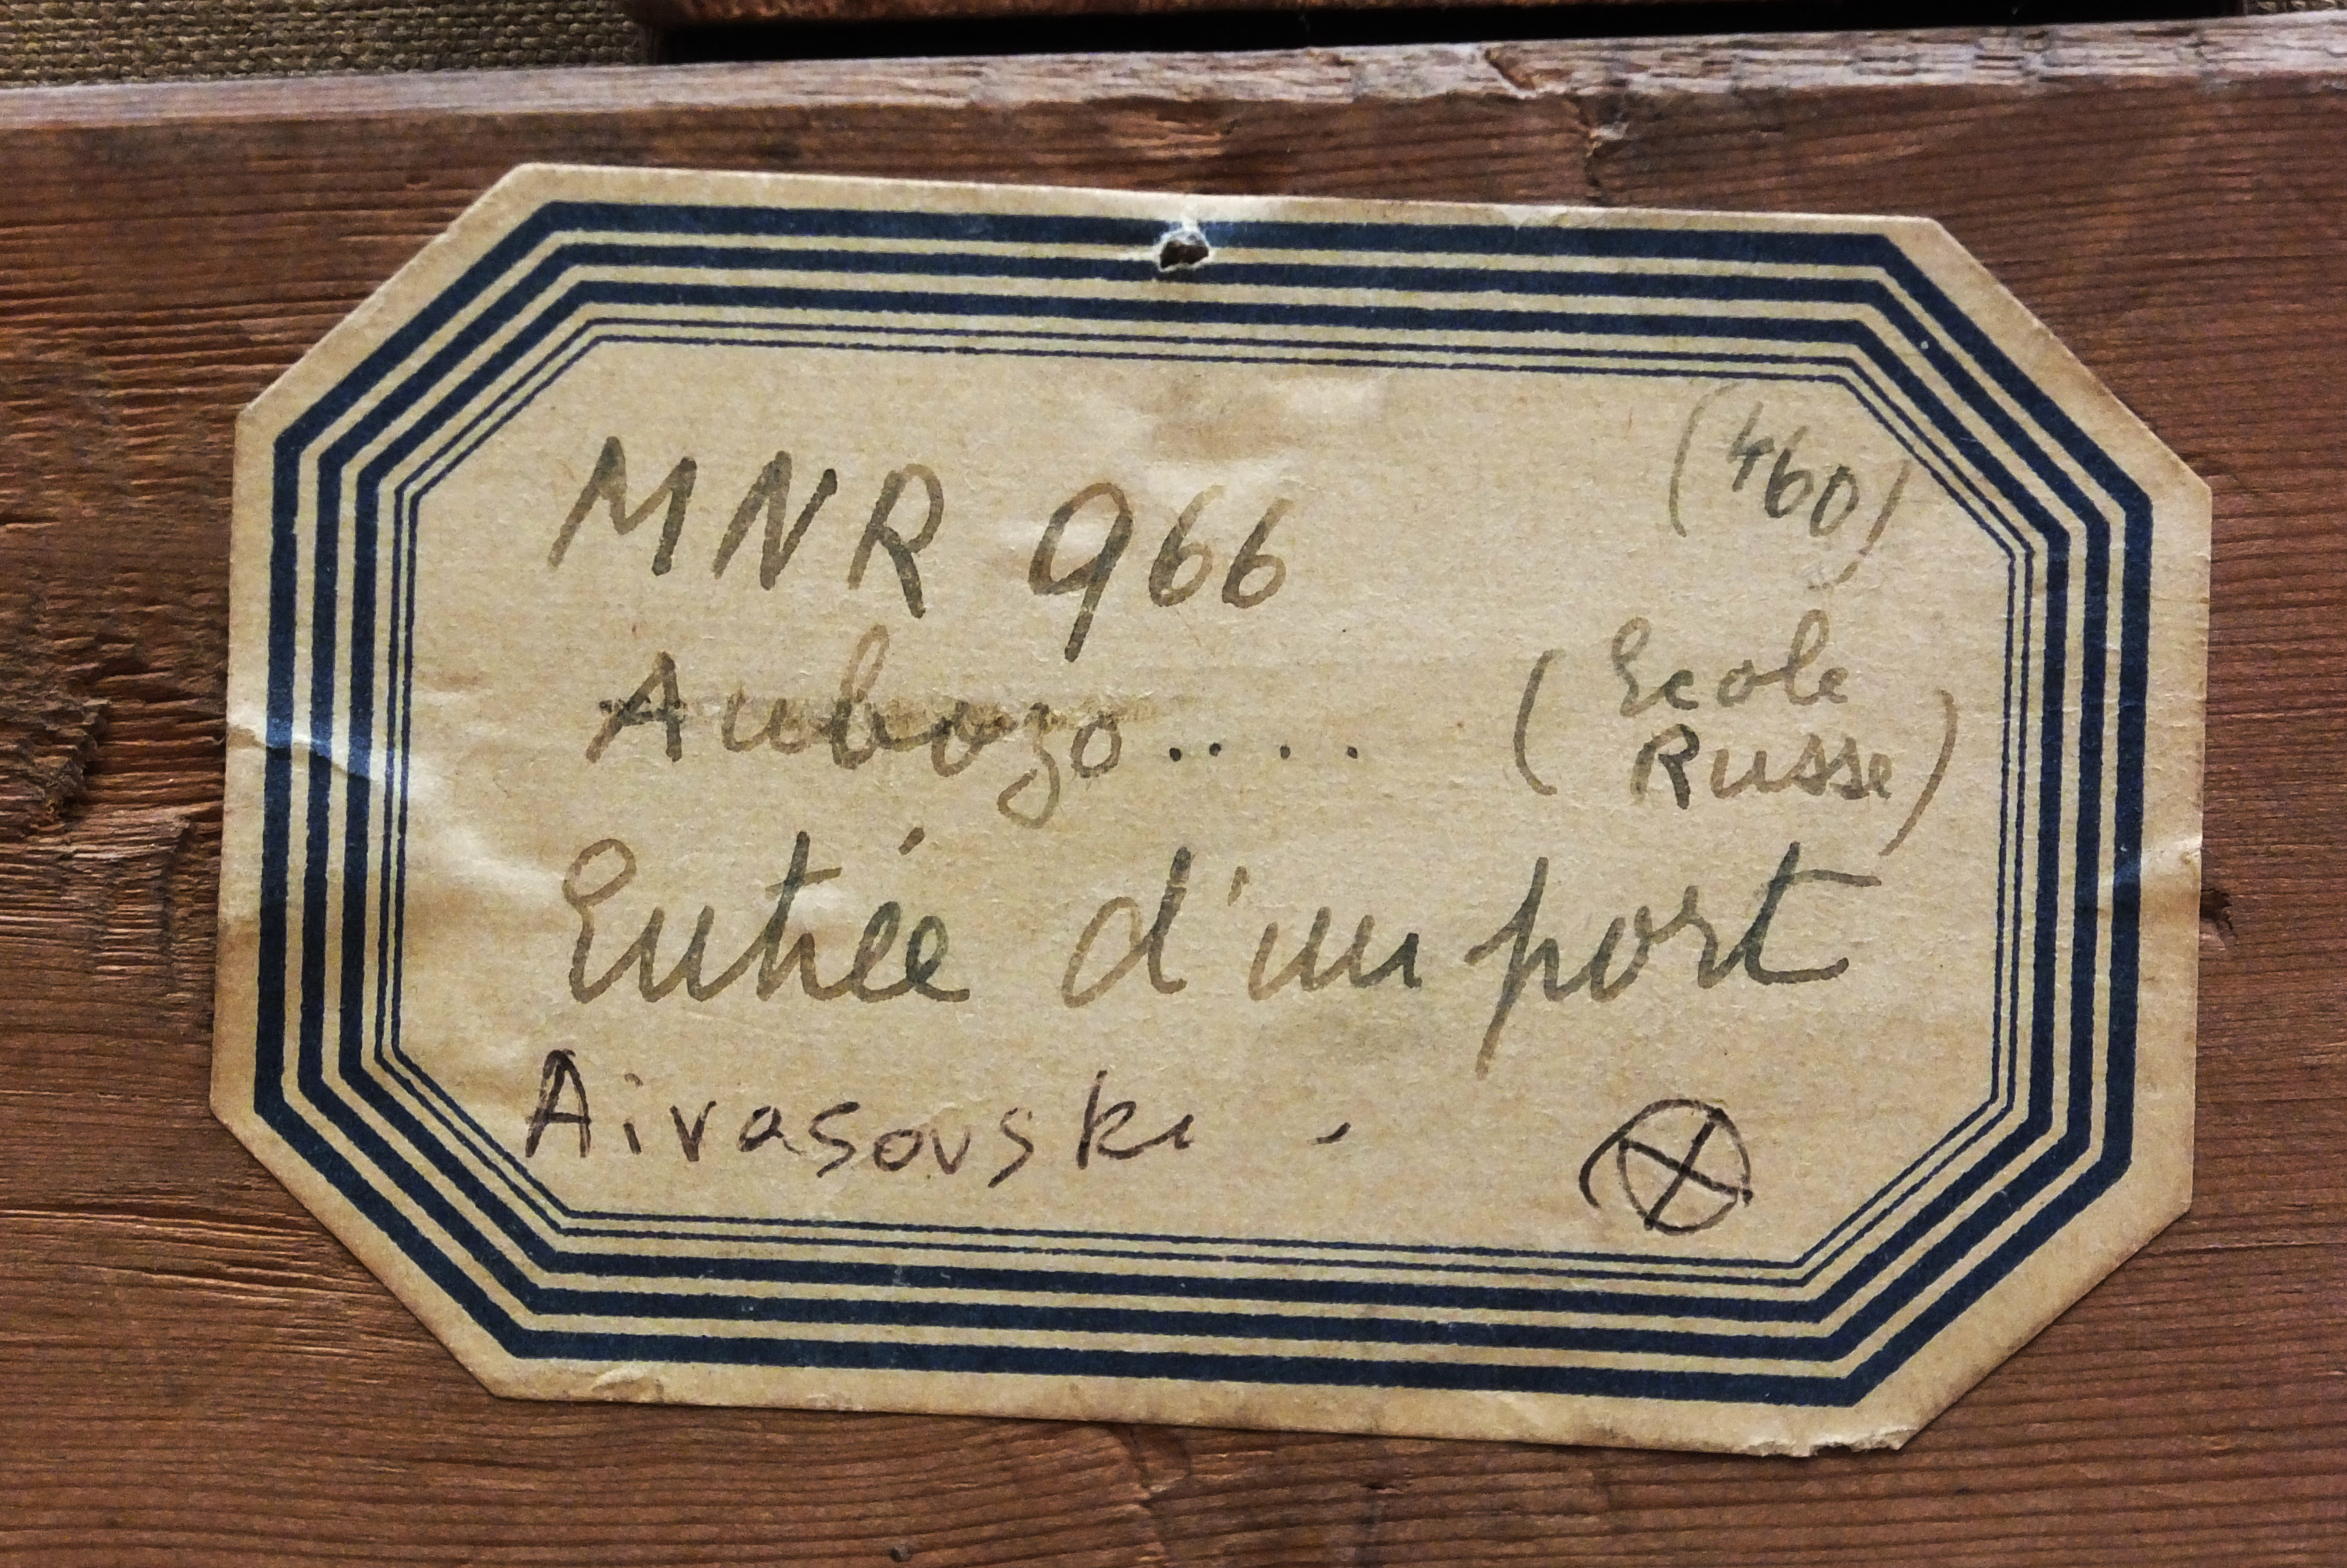 (460)
MNR 966
Aubozo.....
(Ecole
Russe)
Entrée d'un port
Aivasovski -